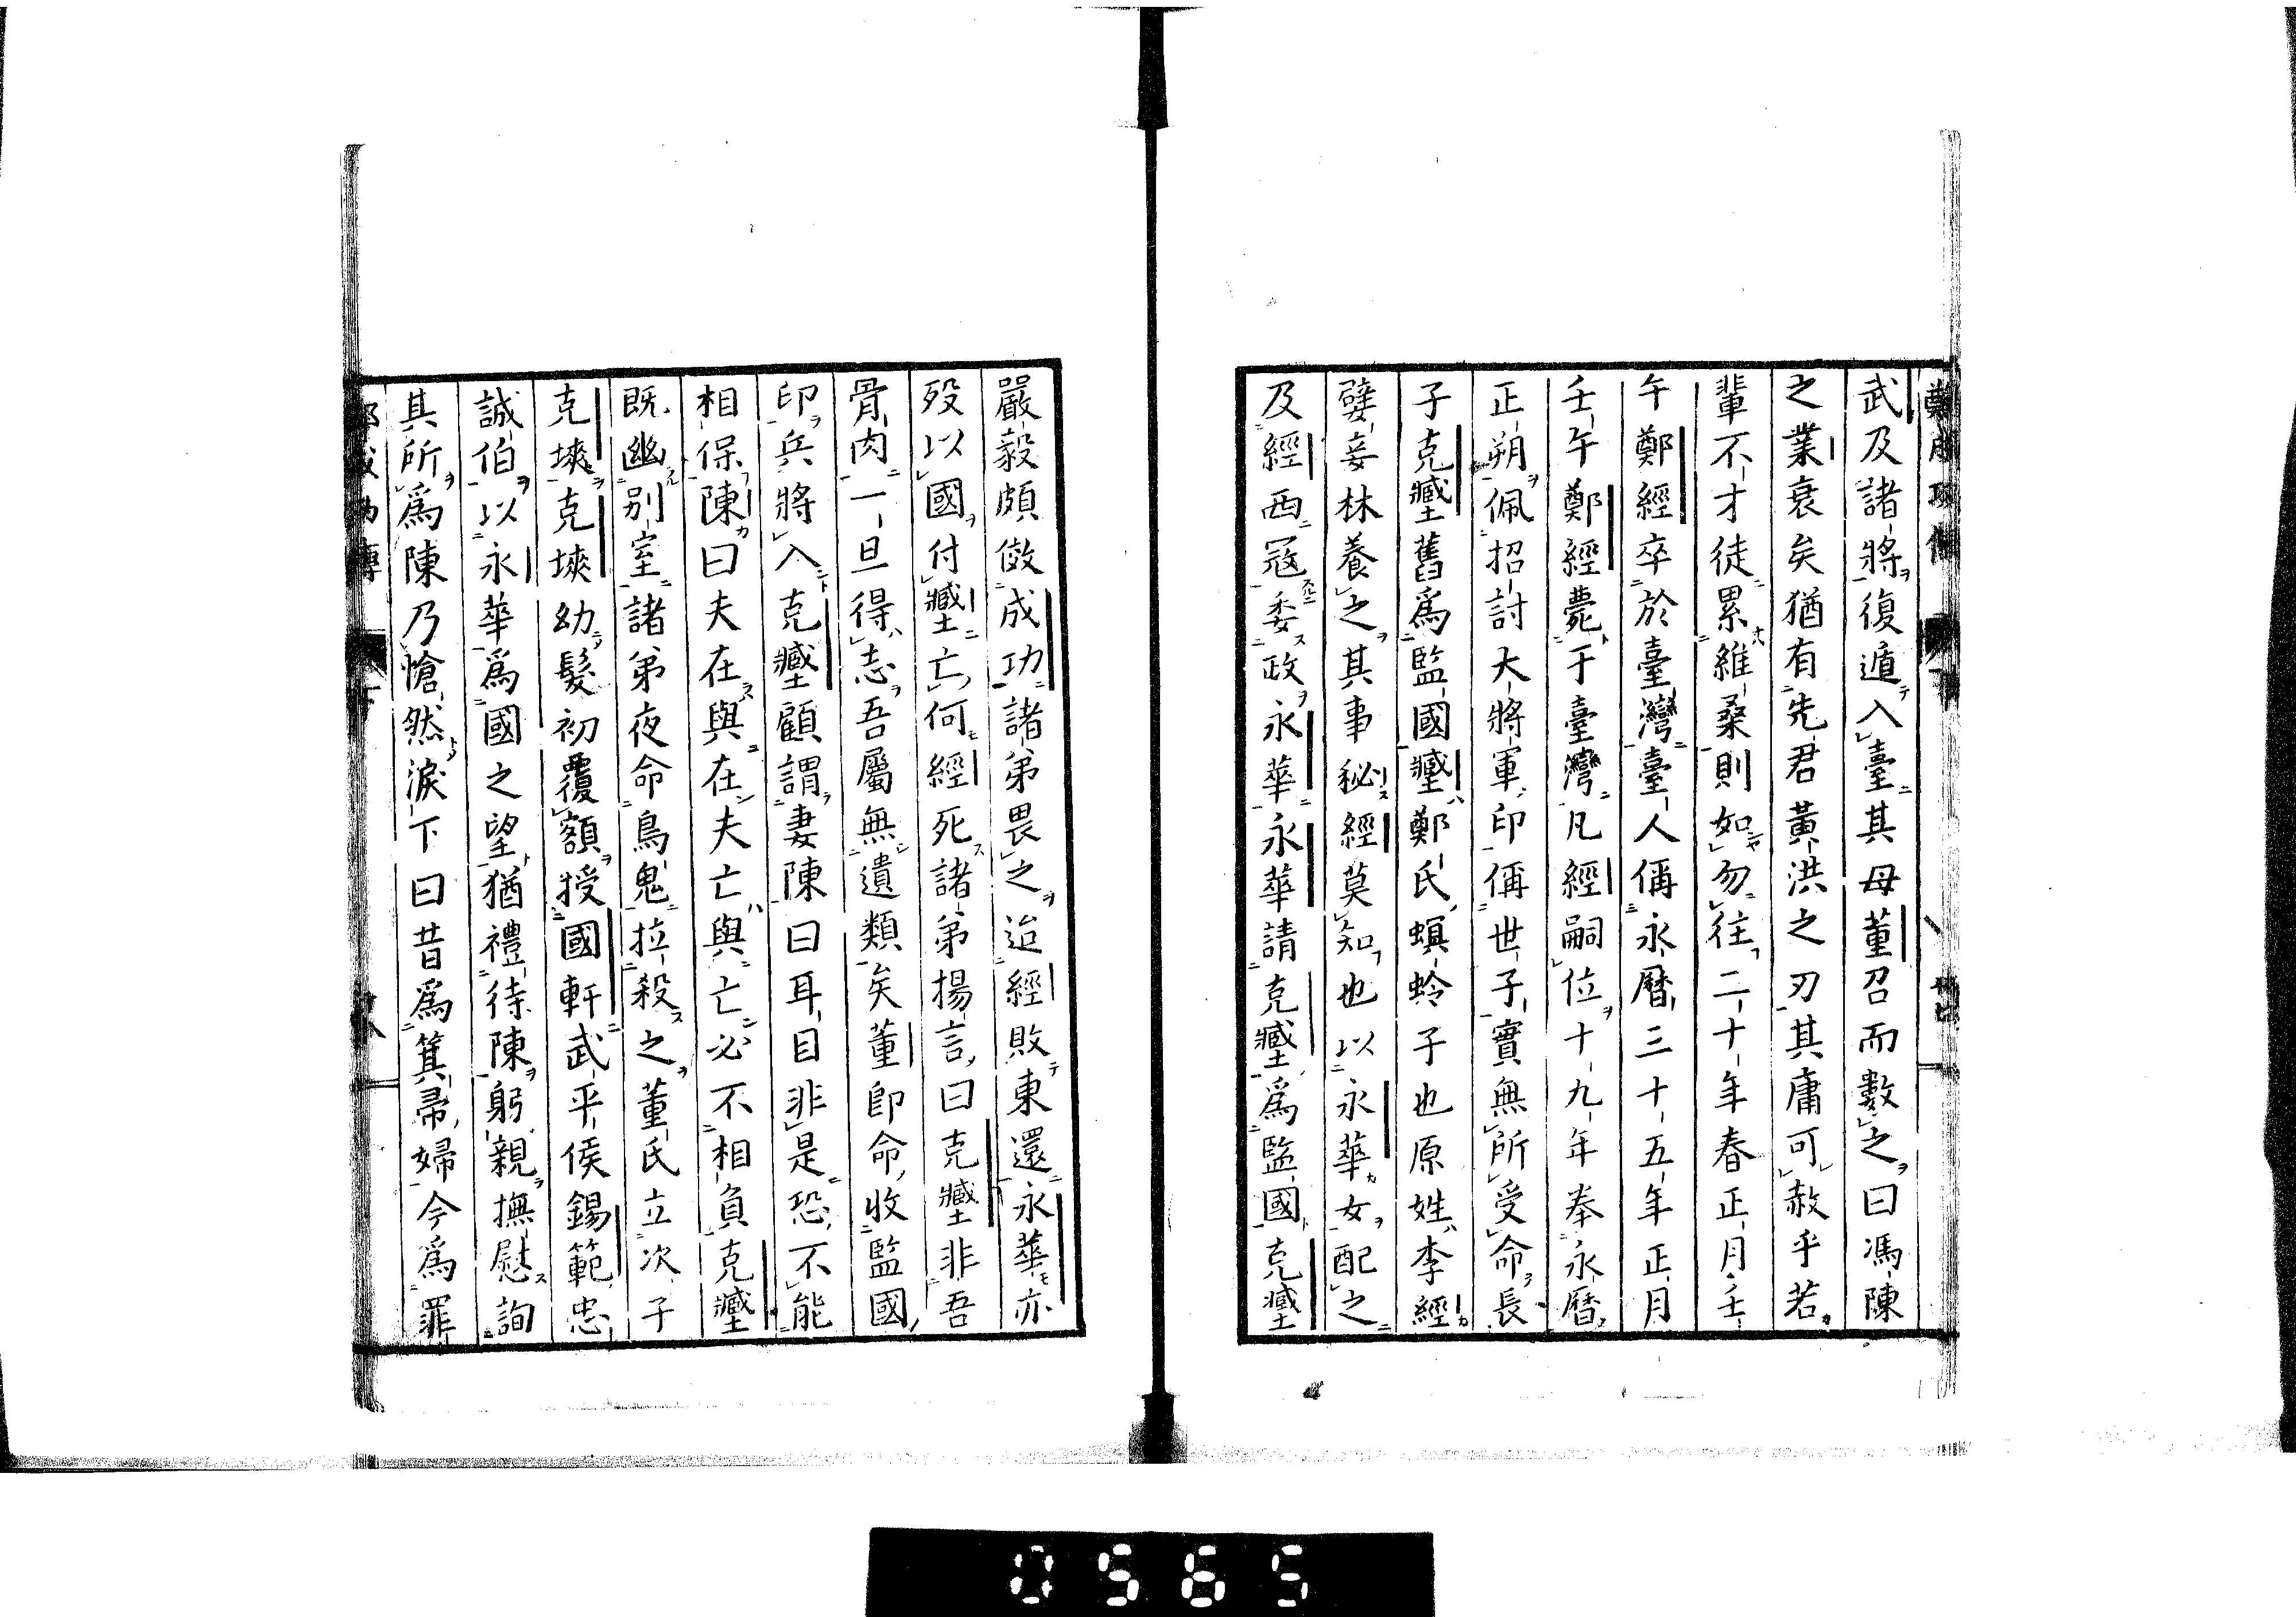 武及諸將復遁入臺其母董召而數之曰馮陳
之業衰矣猶有先君黃洪之刃其庸可赦乎若
輩不才徒累維桑則如勿往二十年春正月壬
午鄭經卒於臺灣臺人偁永曆三十五年正月
壬午鄭經薨于臺灣凡經嗣位十九年奉永曆
正朔佩招討大將軍印偁世子實無所受命長
子克𡒉舊爲監國𡒉鄭氏螟蛉子也原姓李經
嬖妾林養之其事秘經莫知也以永華女配之
及經西寇委政永華永華請克𡒉爲監國克𡒉
嚴毅頗倣成功諸弟畏之迨經敗東還永華亦
歿以國付𡒉亡何經死諸弟揚言曰克𡒉非吾
骨肉一旦得志吾屬無遺類矣董即命收監國
印兵將入克𡒉顧謂妻陳曰耳目非是恐不能
相保陳曰夫在與在夫亡與亡必不相負克𡒉
既幽別室諸弟夜命烏鬼拉殺之董氏立次子
克塽克塽幼髮初覆額授國軒武平侯錫範忠
誠伯以永華爲國之望猶禮待陳躬親撫慰詢
其所爲陳乃愴然淚下曰昔爲箕帚婦今爲罪
0565